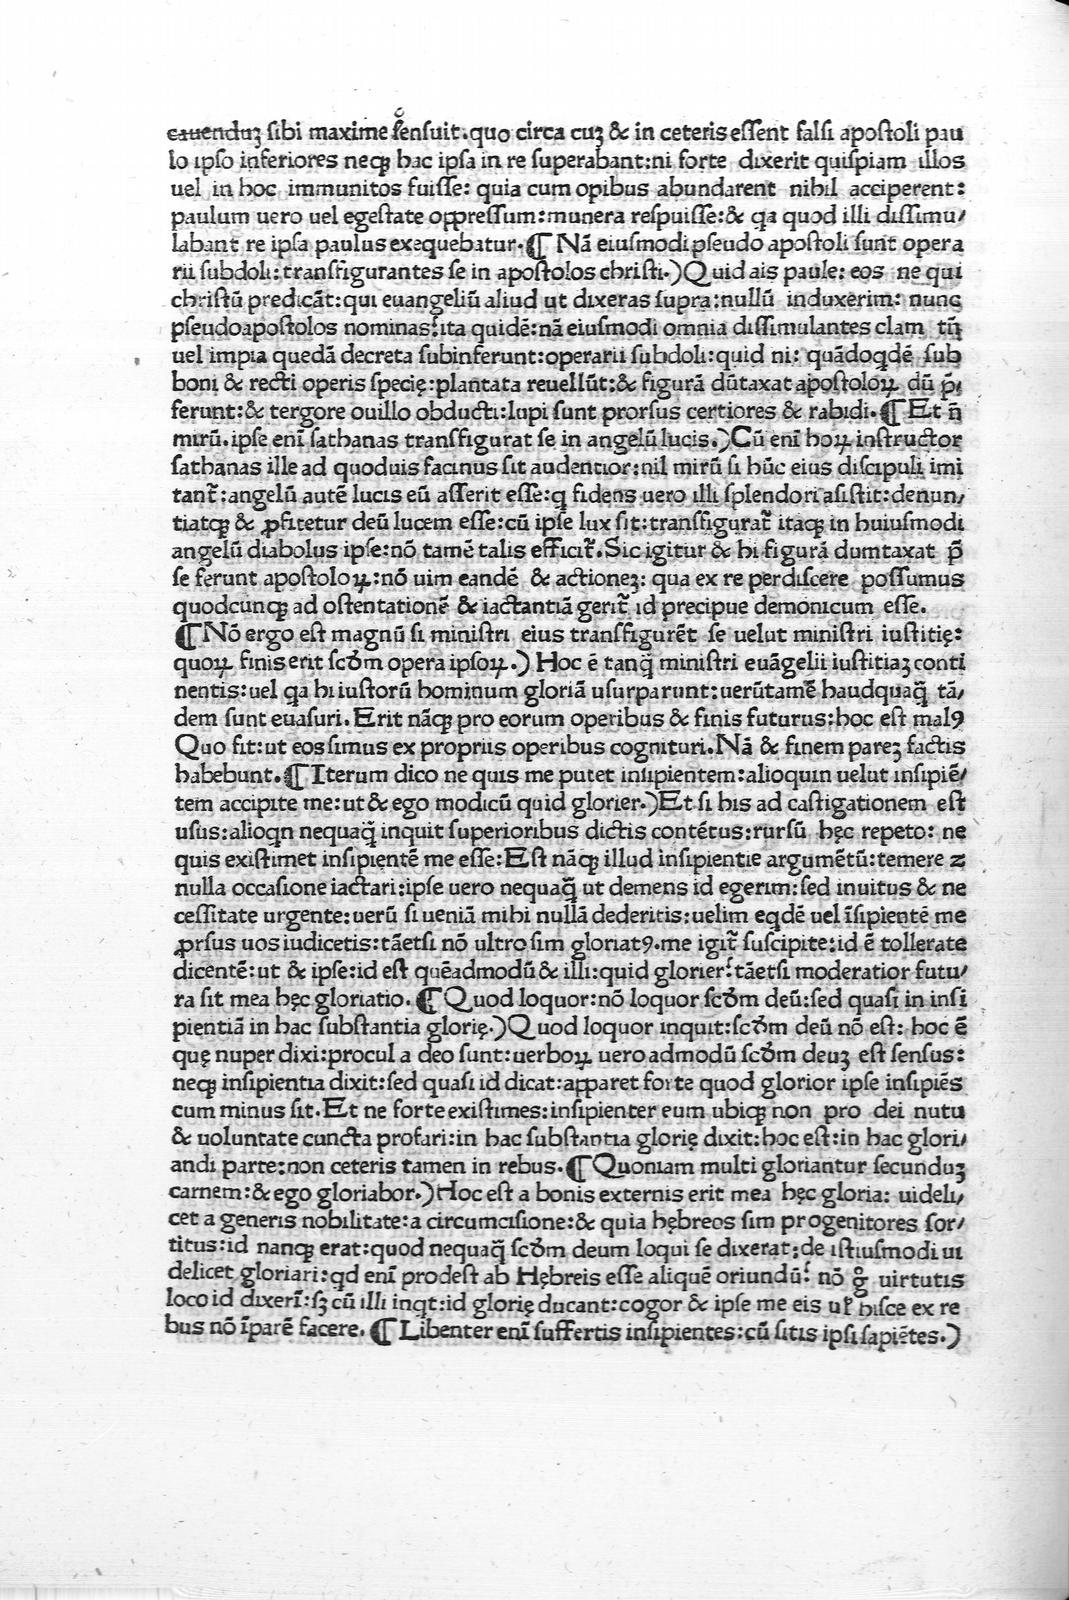 cauenduʒ ſibi maxime ſenſuit.quo circa cuʒ & in ceteris eſſent falſi apoſtoli pau
lo ipſo inferiores neqꝫ hac ipſa in re ſuperabant:ni forte dixerit quiſpiam illos
uel in hoc immunitos fuiſſe: quia cum opibus abundarent nihil acciperent:
paulum uero uel egeſtate oppreſſum:munera reſpuiſſe:& qa quod illi diſſimu/
labant re ipſa paulus exequebatur.¶ Nā eiuſmodi pſeudo apoſtoli ſunt opera
rii ſubdoli:transfigurantes ſe in apoſtolos chriſti.)Quid ais paule: eos ne qui
chriſtū predicāt:qui euangeliū aliud ut dixeras ſupra:nullū induxerim: nunc
pſeudoapoſtolos nominas:ita quidē:nā eiuſmodi omnia diſſimulantes clam tn̄
uel impia quedā decreta ſubinferunt:operarii ſubdoli:quid ni: quādoqdē ſub
boni & recti operis ſpecię:plantata reuellūt:& figurā dūtaxat apoſtoloꝝ dū p̄/
ferunt:& tergore ouillo obducti:lupi ſunt prorſus certiores & rabidi.¶Et n̄
mirū.ipſe enī ſathanas transfigurat ſe in angelū lucis.)Cū enī hoꝝ inſtructor
ſathanas ille ad quoduis facinus ſit audentior:nil mirū ſi hūc eius diſcipuli imi
tant̄:angelū autē lucis eū aſſerit eſſe:q fidens uero illi ſplendori aſiſtit:denun/
tiatqꝫ & ꝓfitetur deū lucem eſſe:cū ipſe lux ſit:transfigurat̄ itaqꝫ in huiuſmodi
angelū diabolus ipſe:nō tamē talis efficit̄.Sic igitur & hi figurā dumtaxat p̄
ſe ferunt apoſtoloꝝ:nō uim eandē & actioneʒ: qua ex re perdiſcere poſſumus
quodcunqꝫ ad oſtentationē & iactantiā gerit̄ id precipue demonicum eſſe.
¶Nō ergo eſt magnū ſi miniſtri eius transfigurēt ſe uelut miniſtri iuſtitię:
quoꝝ finis erit ſcd̄m opera ipſoꝝ.) Hoc ē tanq̄ miniſtri euāgelii iuſtitiaʒ conti
nentis:uel qa hi iuſtorū hominum gloriā uſurparunt:uerūtamē haudquaq̄ tā/
dem ſunt euaſuri.Erit nāqꝫ pro eorum operibus & finis futurus:hoc eſt malꝯ
Quo fit:ut eos ſimus ex propriis operibus cognituri.Nā & finem pareʒ factis
habebunt.¶Iterum dico ne quis me putet inſipientem:alioquin uelut inſipiē/
tem accipite me:ut & ego modicū quid glorier.)Et ſi his ad caſtigationem eſt
uſus:alioqn nequaq̄ inquit ſuperioribus dictis contētus:rurſū hęc repeto: ne
quis exiſtimet inſipientē me eſſe:Eſt nāqꝫ illud inſipientie argumētū:temere ꝛ
nulla occaſione iactari:ipſe uero nequaq̄ ut demens id egerim:ſed inuitus & ne
ceſſitate urgente:uerū ſi ueniā mihi nullā dederitis:uelim eqdē uel īſipientē me
ꝓrſus uos iudicetis:tāetſi nō ultro ſim gloriatꝯ.me igit̄ ſuſcipite:id ē tollerate
dicentē:ut & ipſe:id eſt quēadmodū & illi:quid glorier:tāetſi moderatior futu/
ra ſit mea hęc gloriatio.¶Quod loquor:nō loquor ſcd̄m deū:ſed quaſi in inſi
pientiā in hac ſubſtantia glorię.)Quod loquor inquit:ſcd̄m deū nō eſt: hoc ē
quę nuper dixi:procul a deo ſunt:uerboꝝ uero admodū ſcd̄m deuʒ eſt ſenſus:
neqꝫ inſipientia dixit:ſed quaſi id dicat:apparet forte quod glorior ipſe inſipiēs
cum minus ſit.Et ne forte exiſtimes:inſipienter eum ubiqꝫ non pro dei nutu
& uoluntate cuncta profari:in hac ſubſtantia glorię dixit:hoc eſt:in hac glori/
andi parte:non ceteris tamen in rebus.¶Quoniam multi gloriantur ſecunduʒ
carnem:& ego gloriabor.)Hoc eſt a bonis externis erit mea hęc gloria: uideli/
cet a generis nobilitate:a circumciſione:& quia hębreos ſim progenitores ſor/
titus:id nanqꝫ erat:quod nequaq̄ ſcd̄m deum loqui ſe dixerat:de iſtiuſmodi ui
delicet gloriari:qd enī prodeſt ab Hębreis eſſe aliquē oriundū: nō g̊ uirtutis
loco id dixerī:ſꝫ cū illi inqt:id glorię ducant:cogor & ipſe me eis uł hiſce ex re
bus nō īparē facere.¶Libenter enī ſuffertis inſipientes:cū ſitis ipſi ſapiētes.)